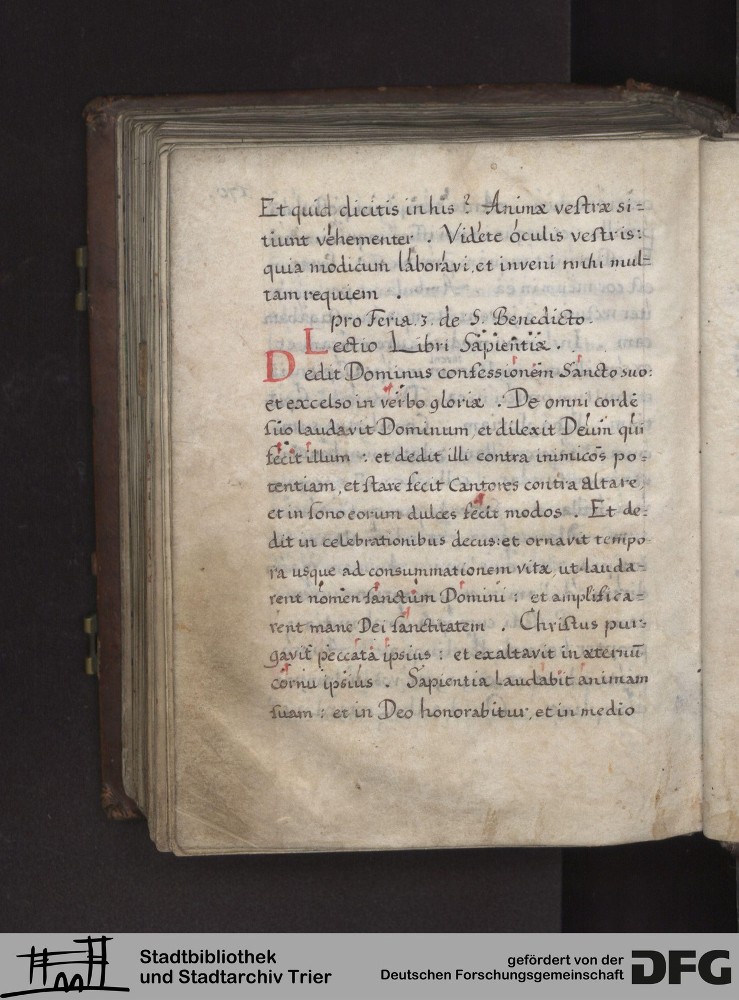 Et quid dicitis in his? Animæ vestræ si=
tiunt vehementer. Videte oculis vestris:
quia modicum laboravi, et inveni mihi mul=
tam requiem.
pro Feria. 3. de S. Benedicto.
Lectio Libri Sapientiæ.
Dedit Dominus confessionem Sancto suo:
et excelso in verbo gloriæ. De omni corde
suo laudavit Dominum, et dilexit Deum qui
fecit illum: et dedit illi contra inimicos po=
tentiam, et stare fecit Cantores contra altare,
et in sono eorum dulces fecit modos. Et de=
dit in celebrationibus decus: et ornavit tempo
ra usque ad consummationem vitæ, ut lauda=
rent nomen sanctum Domini: et amplifica=
rent mane Dei sanctitatem. Christus pur=
gavit peccata ipsius: et exaltavit in æternū
cornu ipsius. Sapientia laudabit animam
suam: et in Deo honorabitur, et in medio
Stadtbibliothek
und Stadtarchiv Trier
gefördert von der
Deutschen Forschungsgemeinschaft
DFG